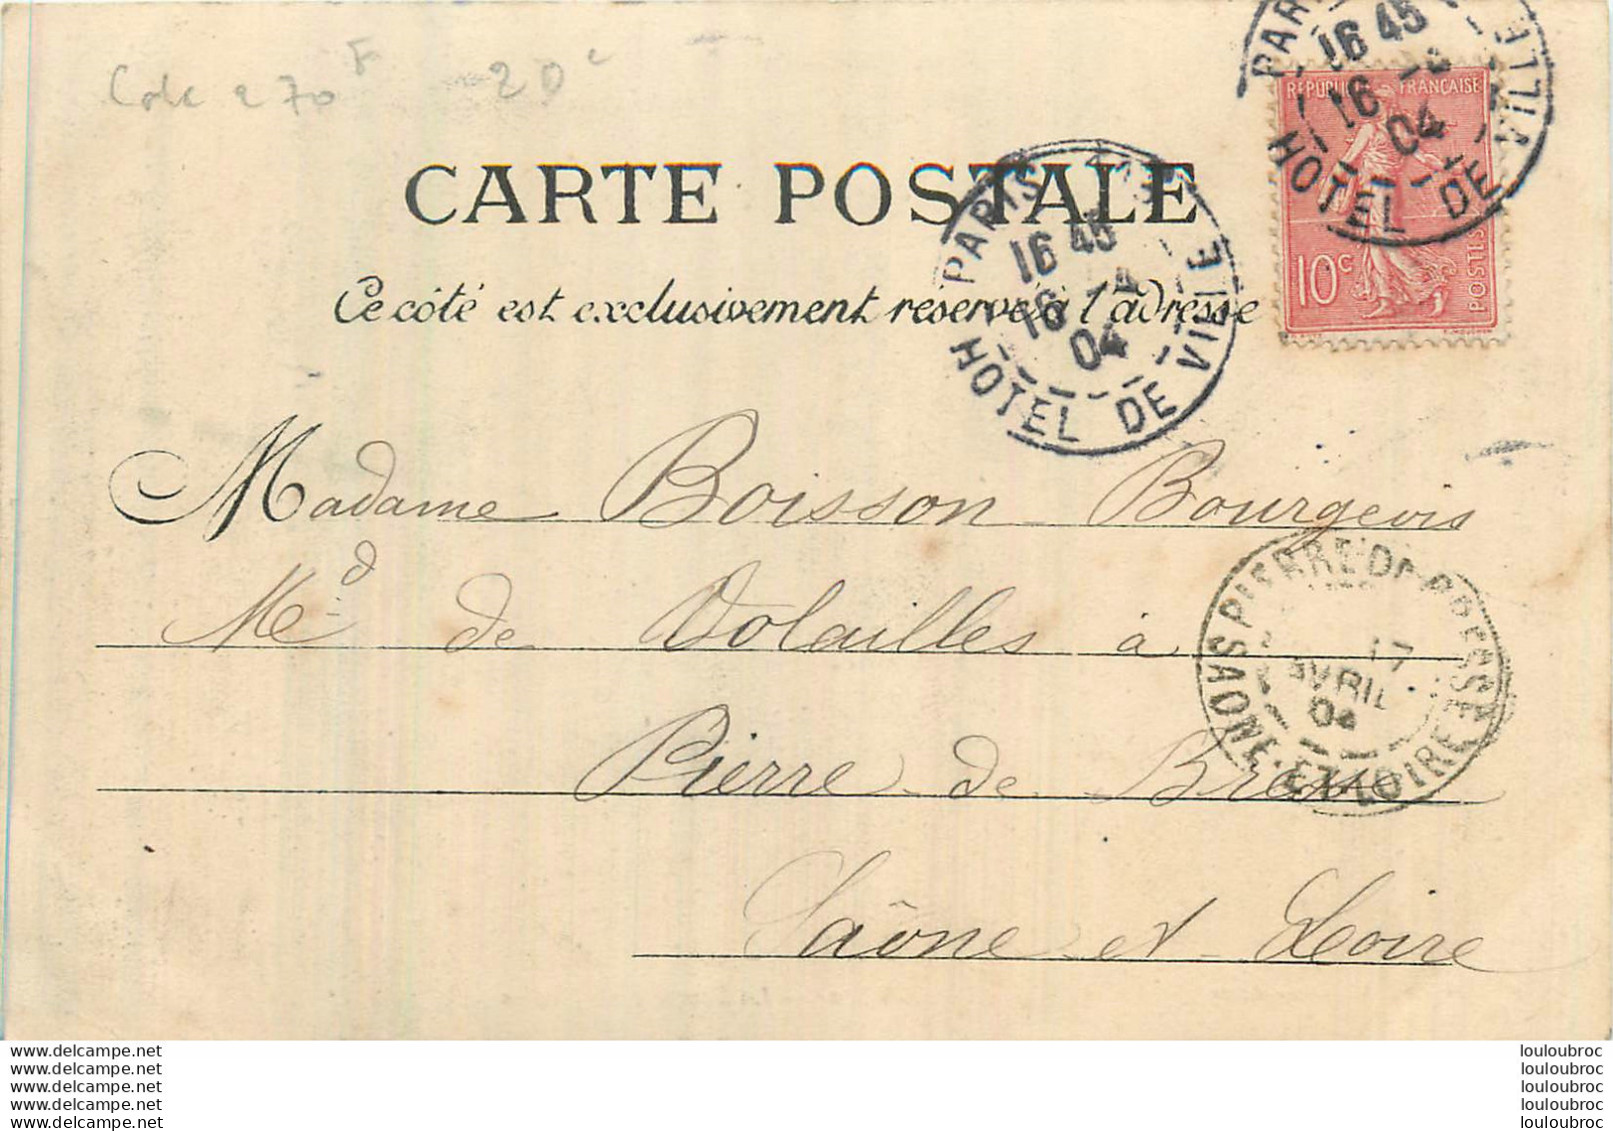 270 F 20 c
CARTE POSTALE
Ce côté est exclusivement réservé à l'adresse
RÉPUBLIQUE FRANÇAISE
10c
POSTES
PARIS
16 45
16 -4
04
HOTEL DE VILLE
PARIS
16 45
16 -4
04
HOTEL DE VILLE
Madame Boisson Bourgeois
Md de Volailles à
Pierre-de-Bresse
Saône et Loire
PIERRE-DE-BRESSE
17
AVRIL
04
SAONE-ET-LOIRE
www.delcampe.net
www.delcampe.net
www.delcampe.net
www.delcampe.net
www.delcampe.net
louloubroc
louloubroc
louloubroc
louloubroc
louloubroc